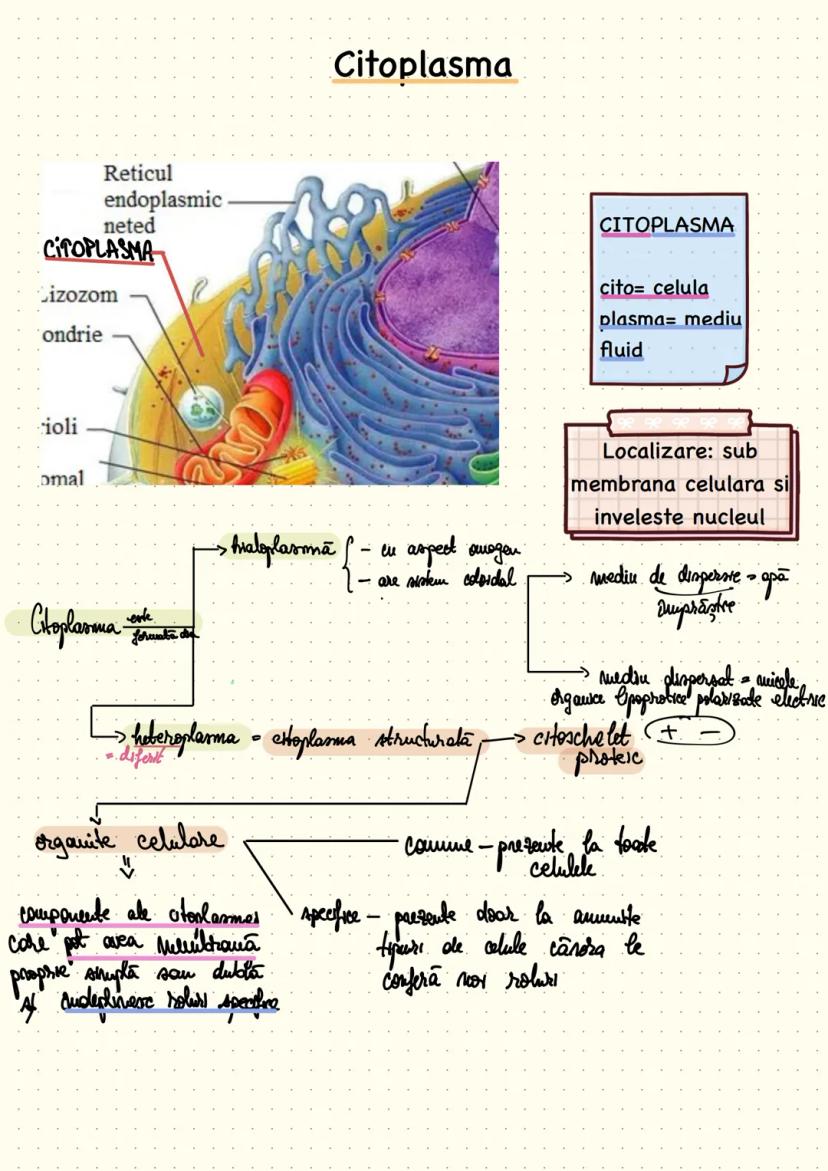 Citoplasma
Reticul
endoplasmic
neted
CITOPLASMA
Lizozom
ondrie
rioli
omal
CITOPLASMA
cito= celula
plasma= mediu
fluid
Localizare: sub
membrana celulara si
inveleste nucleul
hialoplasmă
- cu aspect omogen
- are sistem coloidal
mediu de dispersie = apă
împrăștie
mediu dispersat = micele
organice lipoproteice polarizate electric
+ -
Citoplasma este
formată din
heteroplasma = citoplasma structurată
= diferit
citoschelet
proteic
organite celulare
comune - prezente la toate
celulele
componente ale citoplasmei
care pot avea membrană
proprie simplă sau dublă
și îndeplinesc roluri specifice
specifice - prezente doar la anumite
tipuri de celule cărora le
conferă noi roluri